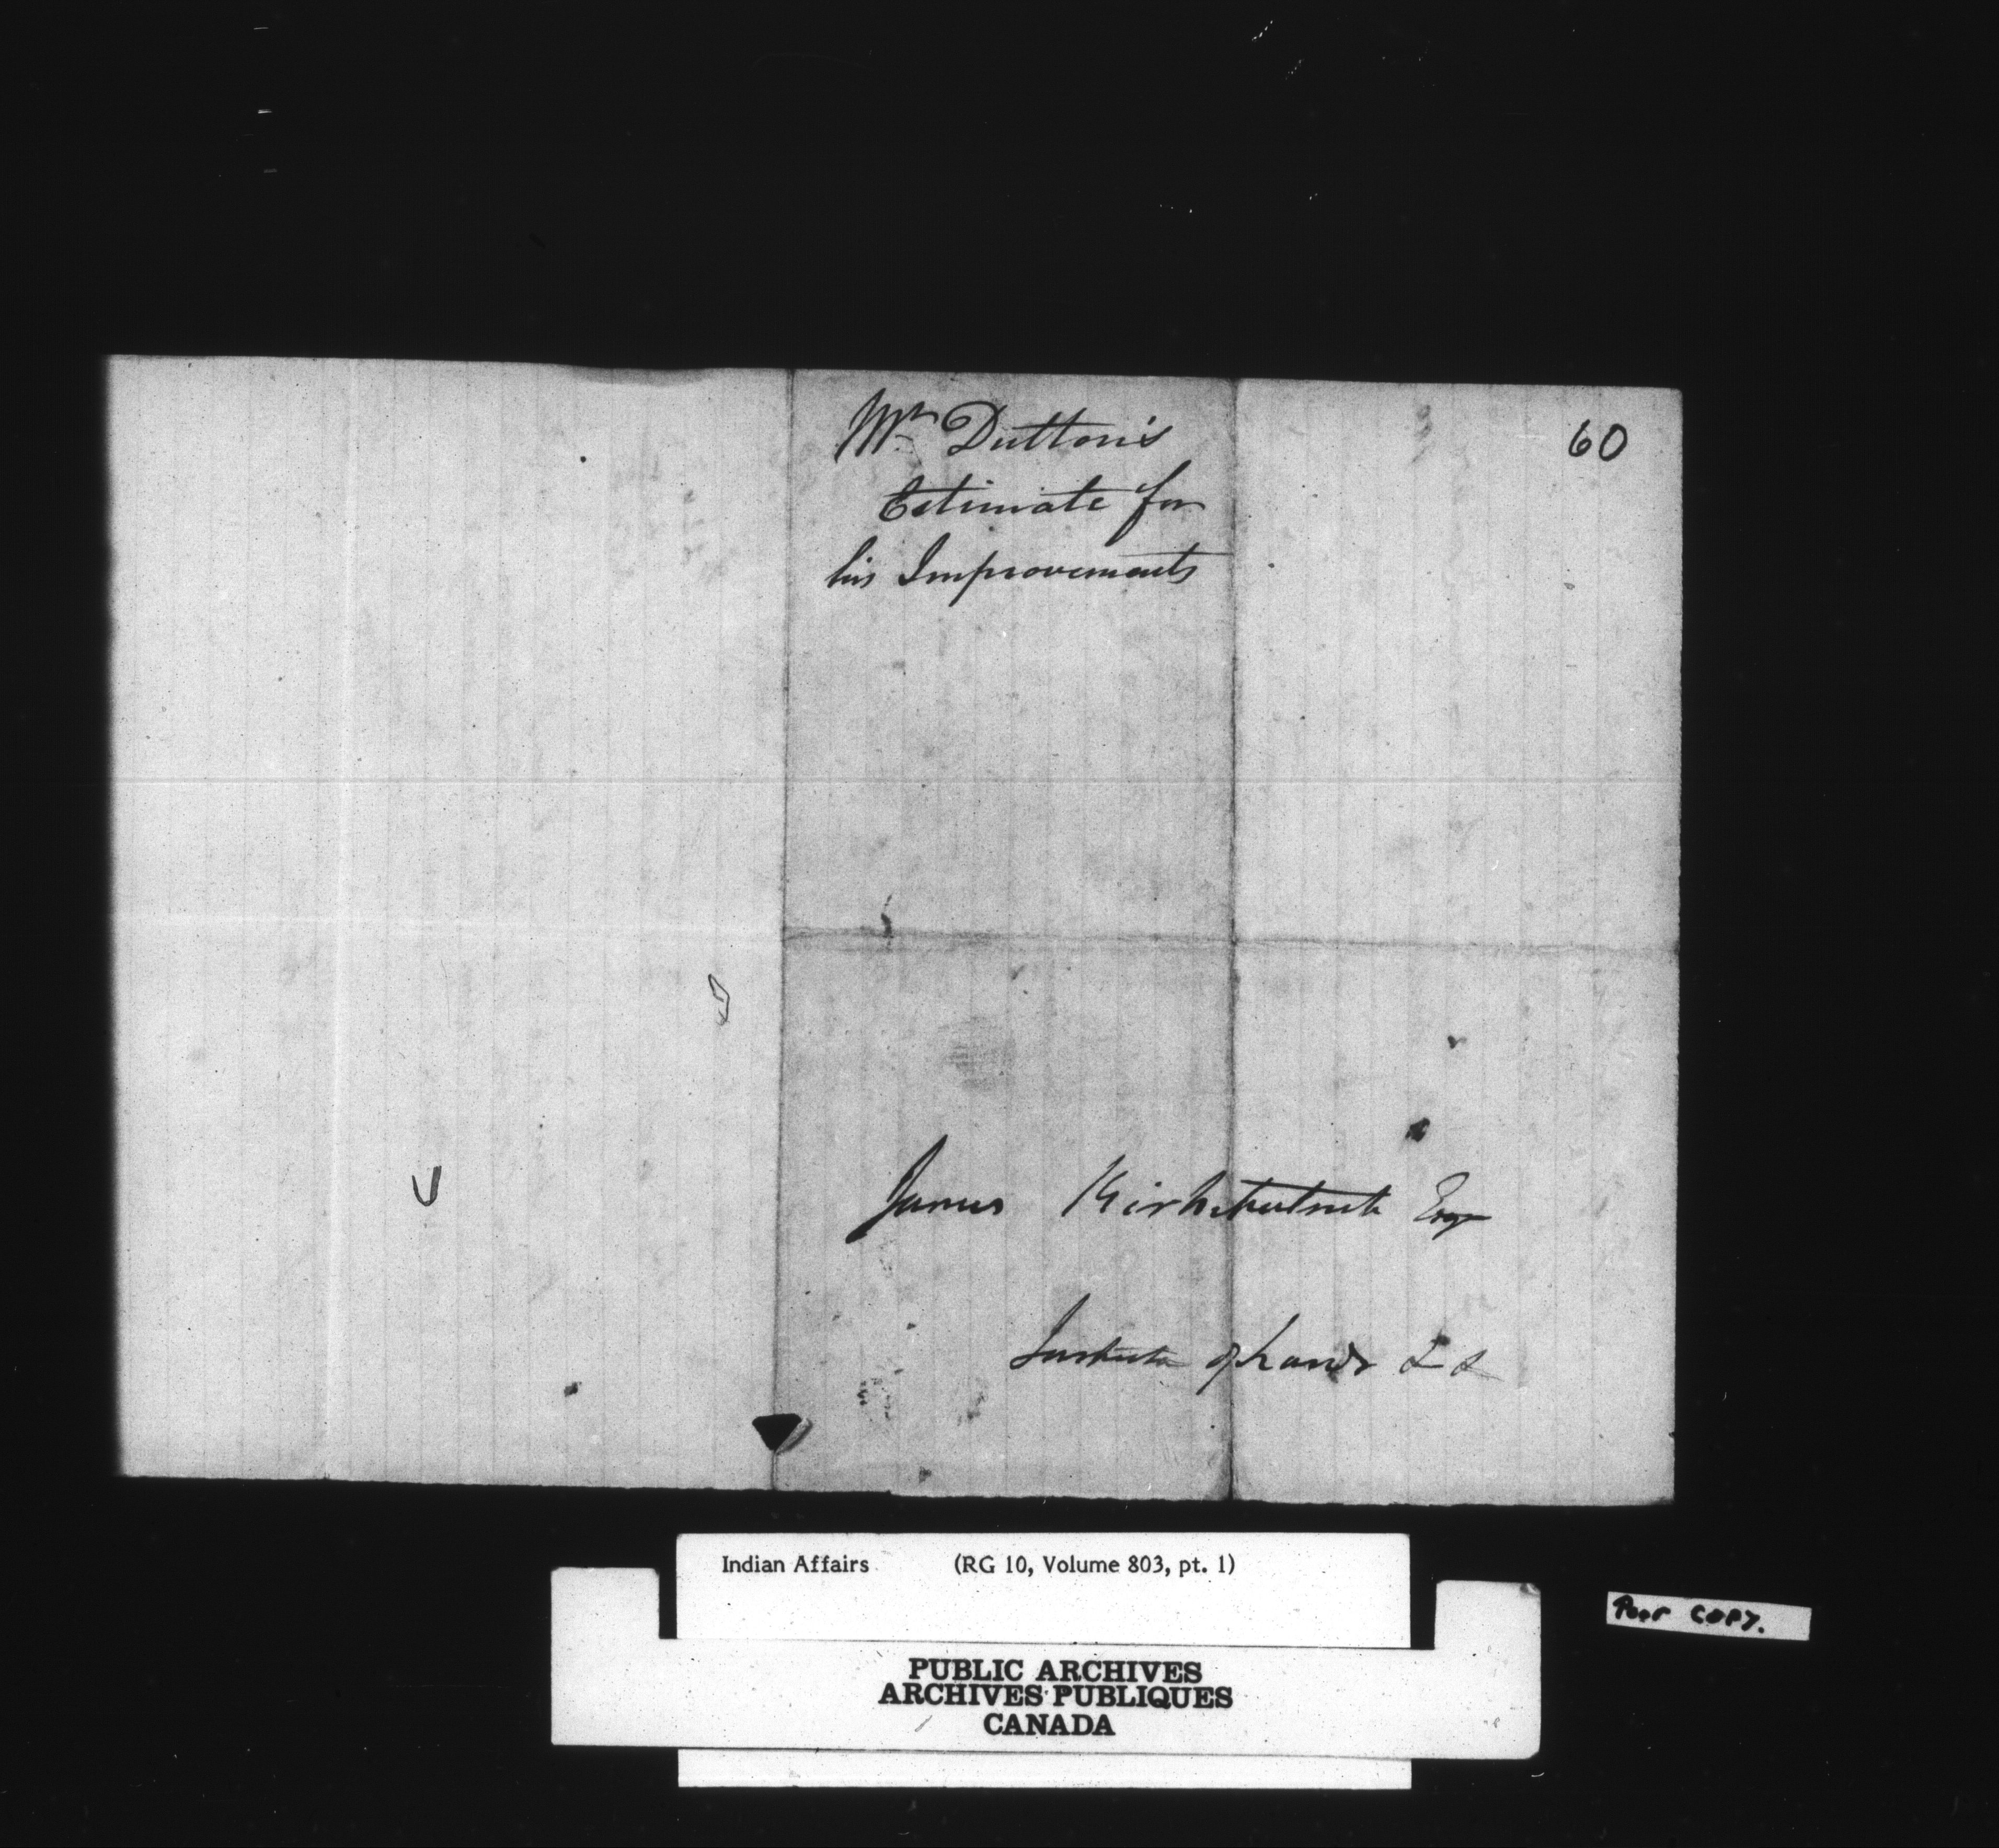 60
Mr Dutton's
Estimate for
his Improvements
James Kirkpatrick Esqr
of Lands & &
Indian Affairs (RG 10, Volume 803, pt. 1)
Poor COPY.
PUBLIC ARCHIVES
ARCHIVES PUBLIQUES
CANADA